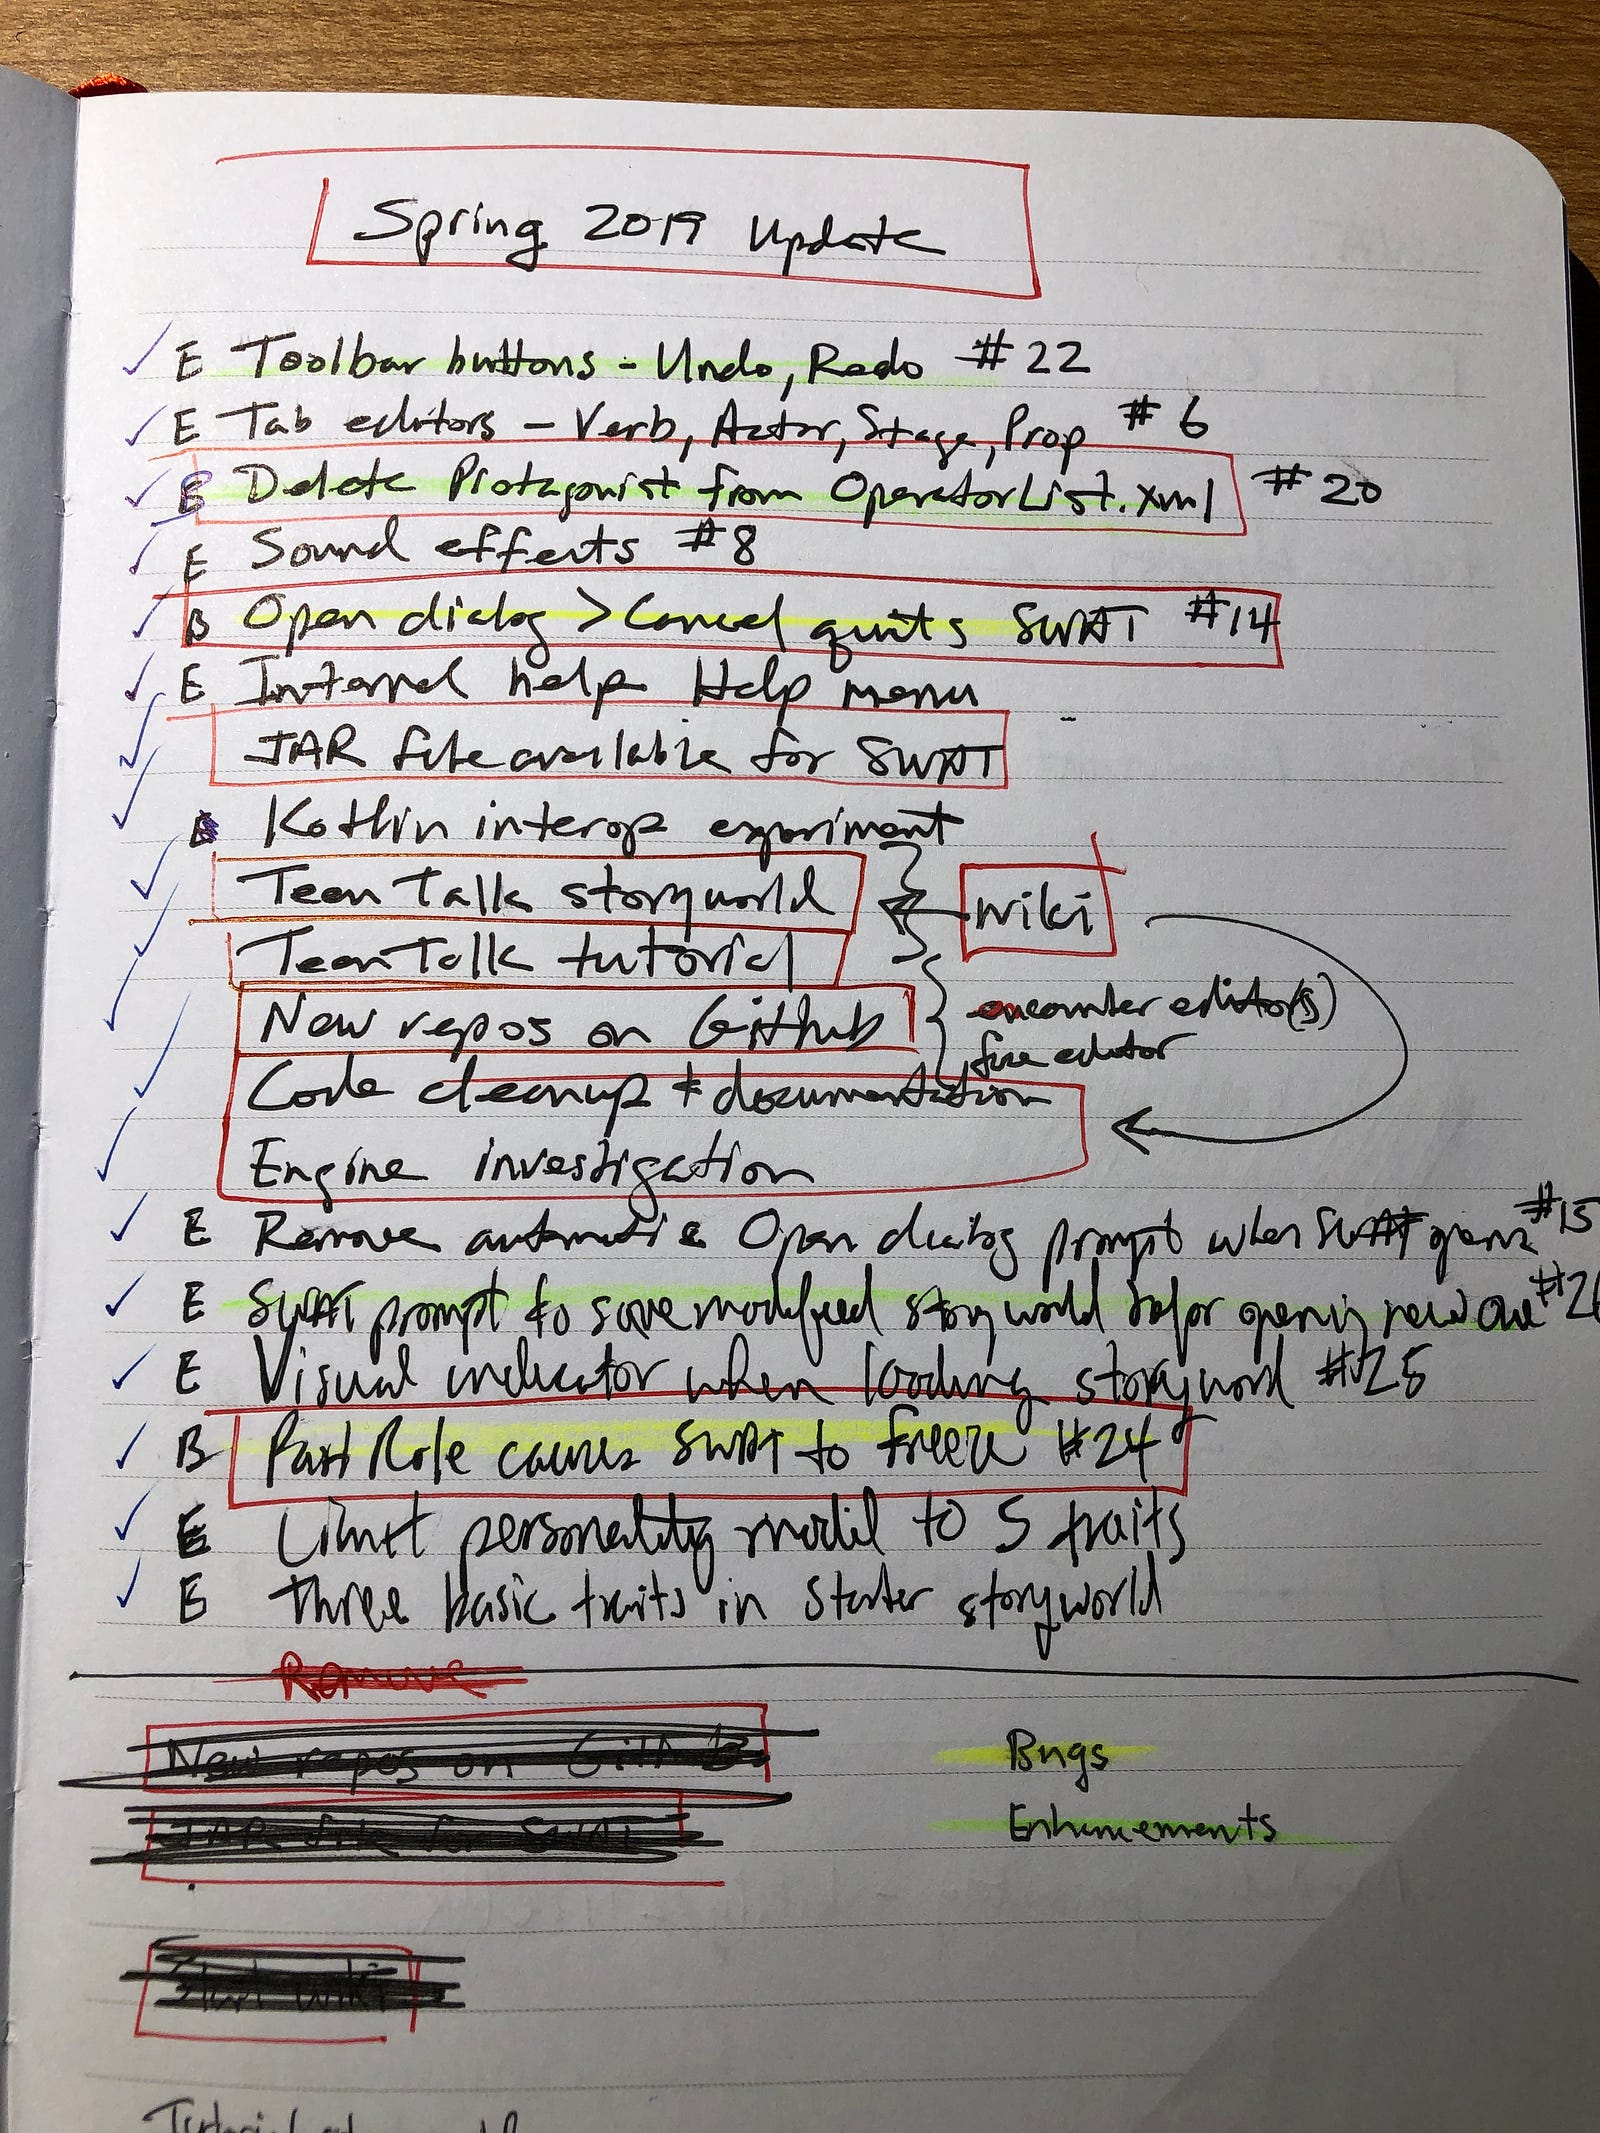 Spring 2019 Update
E Toolbar buttons - Undo, Redo #22
E Tab editors - Verb, Actor, Stage, Prop #6
E Delete Protagonist from OperatorList.xml #20
E Sound effects #8
B Open dialog > Cancel quits SWAT #14
E Internal help Help menu
JAR file available for SWAT
Kotlin interop experiment
Teen Talk storyworld
wiki
Teen Talk tutorial
New repos on GitHub
encounter editor(s)
fire editor
Code cleanup & documentation
Engine investigation
E Remove automatic Open dialog prompt when SWAT opens #15
E SWAT prompt to save modified storyworld befor opening new one #26
E Visual indicator when loading storyworld #25
B Past Role causes SWAT to freeze #24
E Limit personality model to 5 traits
E Three basic traits in starter storyworld
Remove
New repos on GitHub
Bugs
JAR file for SWAT
Enhancements
Start wiki